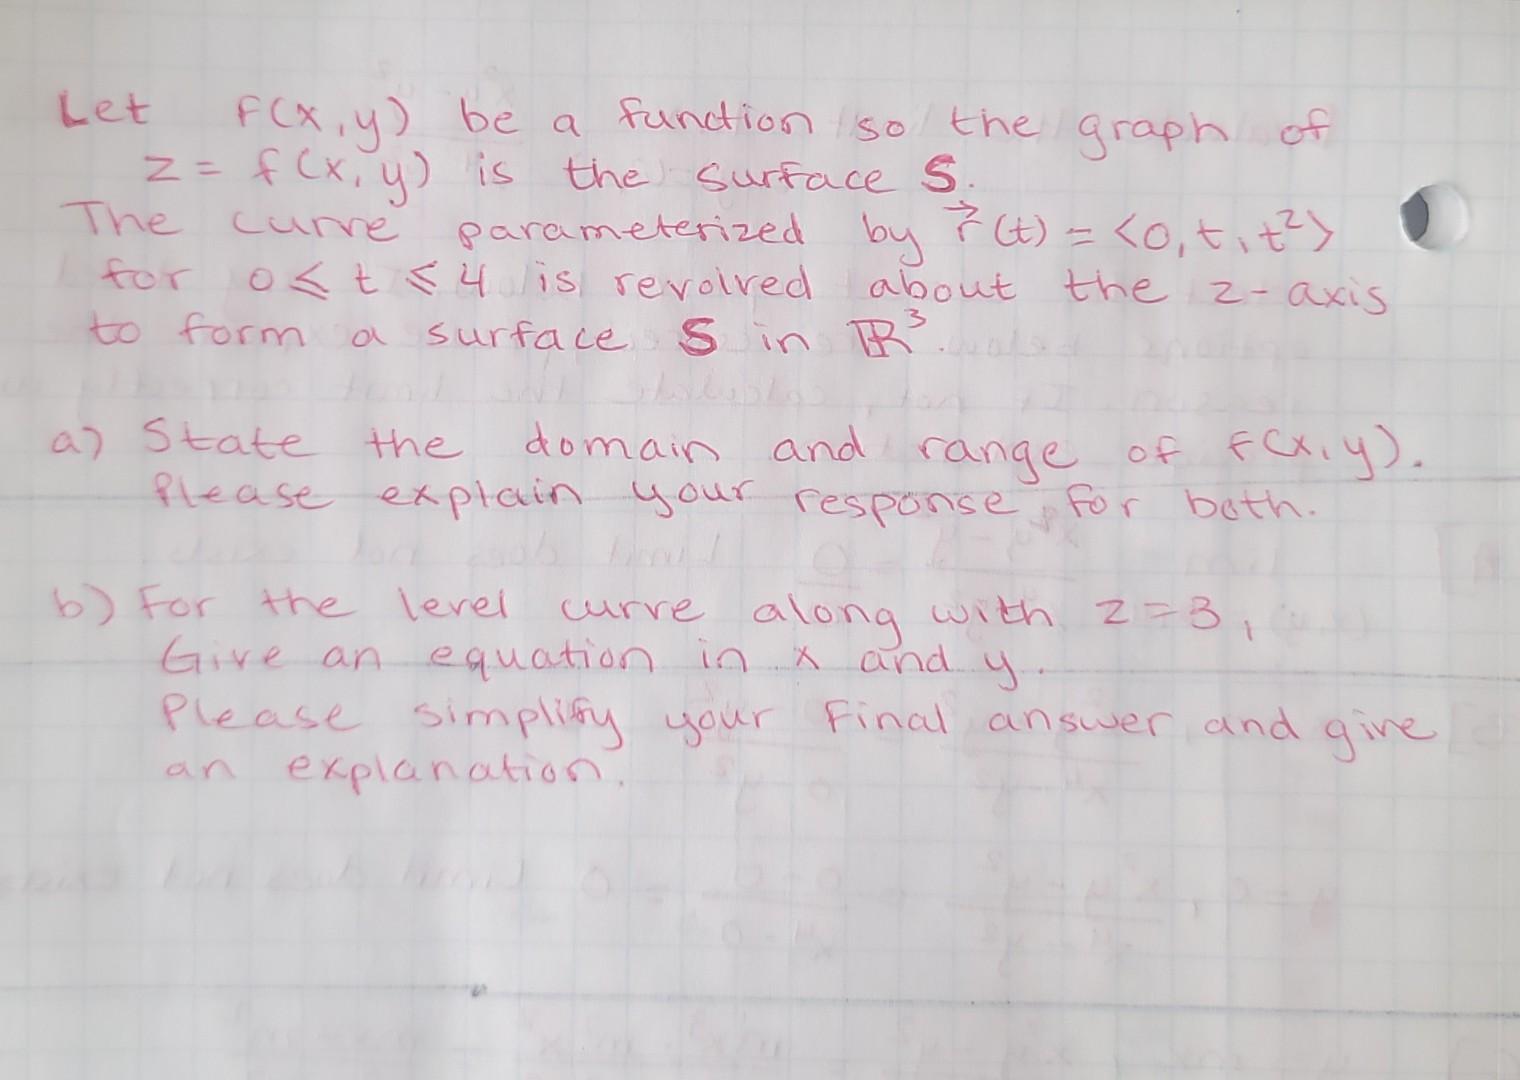 Let f(x,y) be a function so the graph of
z = f(x,y) is the surface S.
The curve parameterized by r⃗(t) = <0, t, t²>
for 0 ≤ t ≤ 4 is revolved about the z-axis
to form a surface S in ℝ³.
a) State the domain and range of f(x,y).
Please explain your response for both.
b) For the level curve along with z = 3,
Give an equation in x and y.
Please simplify your Final answer and give
an explanation.